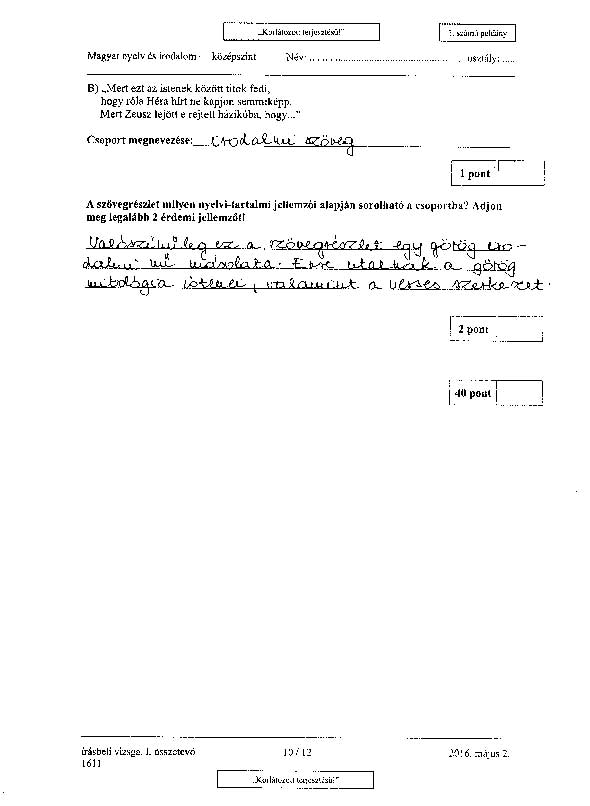 „Korlátozott terjesztésű!”
1. számú példány
Magyar nyelv és irodalom – középszint Név: ........................................ osztály: ......
B) „Mert ezt az istenek között titok fedi,
hogy róla Héra hírt ne kapjon semmiképp.
Mert Zeusz lejött e rejtett házikóba, hogy...”
Csoport megnevezése: irodalmi szöveg
1 pont
A szövegrészlet milyen nyelvi-tartalmi jellemzői alapján sorolható a csoportba? Adjon
meg legalább 2 érdemi jellemzőt!
Valószínűleg ez a szövegrészlet egy görög iro-
dalmi mű másolata. Erre utalnak a görög
mitológia istenei, valamint a verses szerkezet.
2 pont
40 pont
írásbeli vizsga, I. összetevő 10 / 12 2016. május 2.
1611
„Korlátozott terjesztésű!”